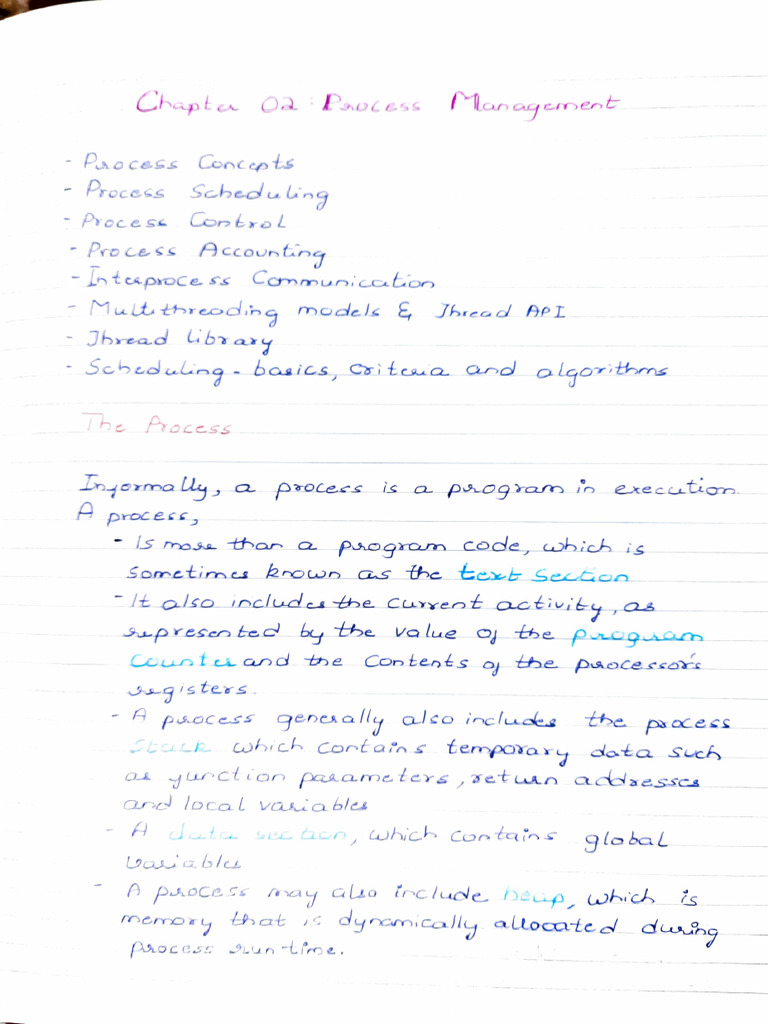 Chapter 02: Process Management
- Process Concepts
- Process Scheduling
- Process Control
- Process Accounting
- Interprocess Communication
- Multithreading models & Thread API
- Thread library
- Scheduling - basics, criteria and algorithms
The Process
Informally, a process is a program in execution.
A process,
- Is more than a program code, which is
sometimes known as the text section
- It also includes the current activity, as
represented by the value of the program
counter and the contents of the processor's
registers.
- A process generally also includes the process
stack which contains temporary data such
as function parameters, return addresses
and local variables
- A data section, which contains global
variables
- A process may also include heap, which is
memory that is dynamically allocated during
process run-time.